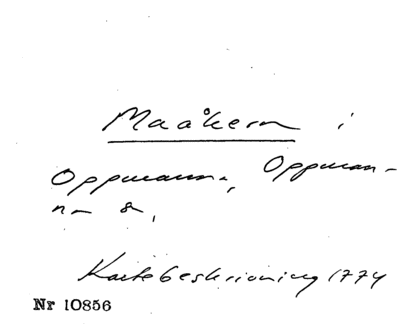 Maåkern i
Oppmanna, Oppman-
na s,
Kartebeskrivning 1774
Nr 10856